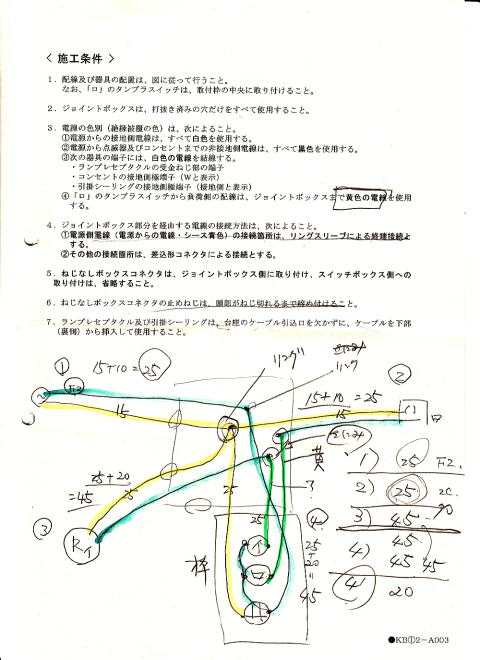 < 施工条件 >
1．配線及び器具の配置は、図に従って行うこと。
なお、「ロ」のタンブラスイッチは、取付枠の中央に取り付けること。
2．ジョイントボックスは、打抜き済みの穴だけをすべて使用すること。
3．電線の色別（絶縁被覆の色）は、次によること。
①電源からの接地側電線は、すべて白色を使用する。
②電源から点滅器及びコンセントまでの非接地側電線は、すべて黒色を使用する。
③次の器具の端子には、白色の電線を結線する。
・ランプレセプタクルの受金ねじ部の端子
・コンセントの接地側極端子（Wと表示）
・引掛シーリングの接地側極端子（接地側と表示）
④「ロ」のタンブラスイッチから負荷側の配線は、ジョイントボックスまで黄色の電線を使用
する。
4．ジョイントボックス部分を経由する電線の接続方法は、次によること。
①電源側電線（電源からの電線・シース青色）の接続箇所は、リングスリーブによる終端接続と
する。
②その他の接続箇所は、差込形コネクタによる接続とする。
5．ねじなしボックスコネクタは、ジョイントボックス側に取り付け、スイッチボックス側への
取り付けは、省略すること。
6．ねじなしボックスコネクタの止めねじは、頭部がねじ切れるまで締め付けること。
7．ランプレセプタクル及び引掛シーリングは、台座のケーブル引込口を欠かずに、ケーブルを下部
（裏側）から挿入して使用すること。
① 15+10=25
リング
リング
②
F2
15
15+10=25
15
(1) ロ
25+20
=45
25
25
黄
1) 25 F2.
2) 25 2C.
3) 45
4) 45
45 45
④ 20
③
Rイ
枠
25
イ
ロ
④
25
+
20
=
45
●KB①2－A003